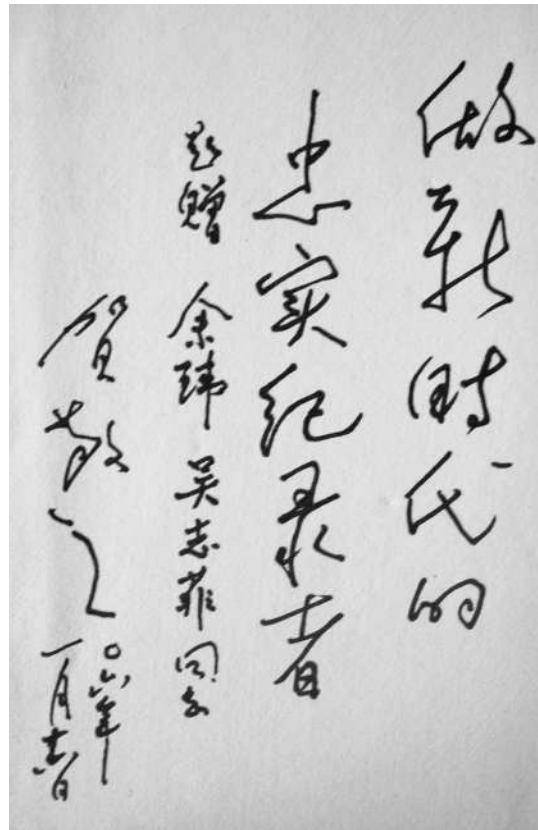 做新时代的
忠实纪录者
题赠 余玮 吴志菲 同志
贺敬之
〇六年
一月十六日